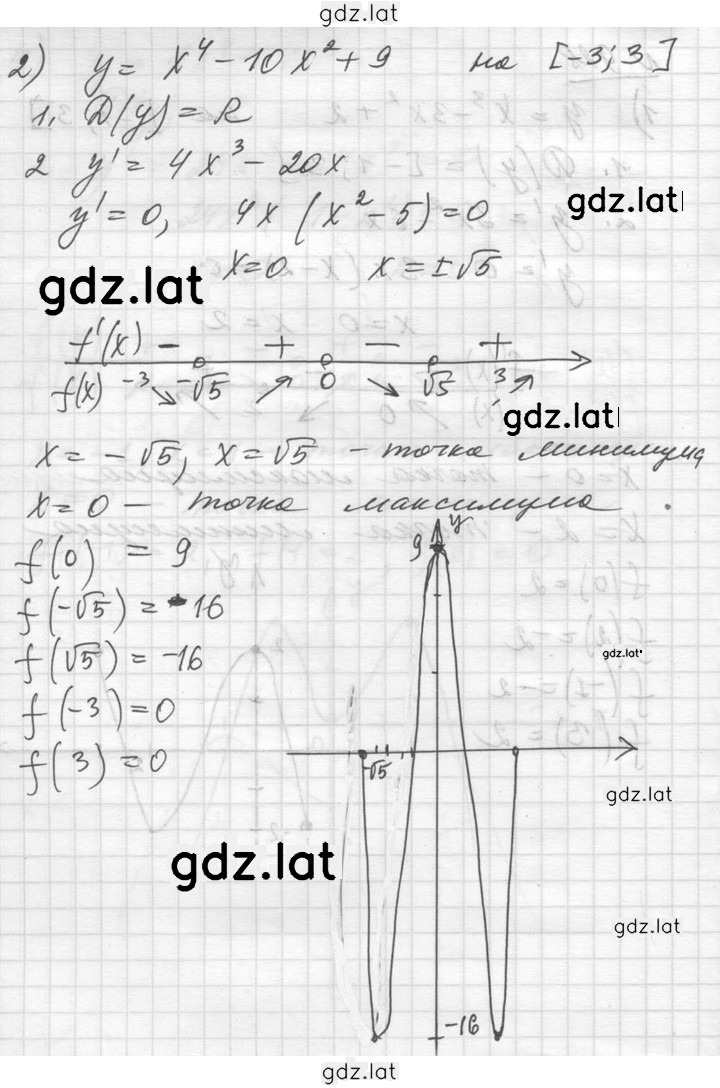 gdz.lat
2) y = x⁴ - 10x² + 9 на [-3; 3]
1. D(y) = R
2 y' = 4x³ - 20x
y' = 0, 4x(x² - 5) = 0
gdz.lat
x = 0 x = ±√5
gdz.lat
f'(x) - + - +
f(x) -3 -√5 0 √5 3
gdz.lat
x = -√5, x = √5 - точка минимума
x = 0 - точка максимума.
f(0) = 9
f(-√5) = -16
f(√5) = -16
f(-3) = 0
f(3) = 0
y
9
gdz.lat
-√5
gdz.lat
gdz.lat
gdz.lat
-16
gdz.lat